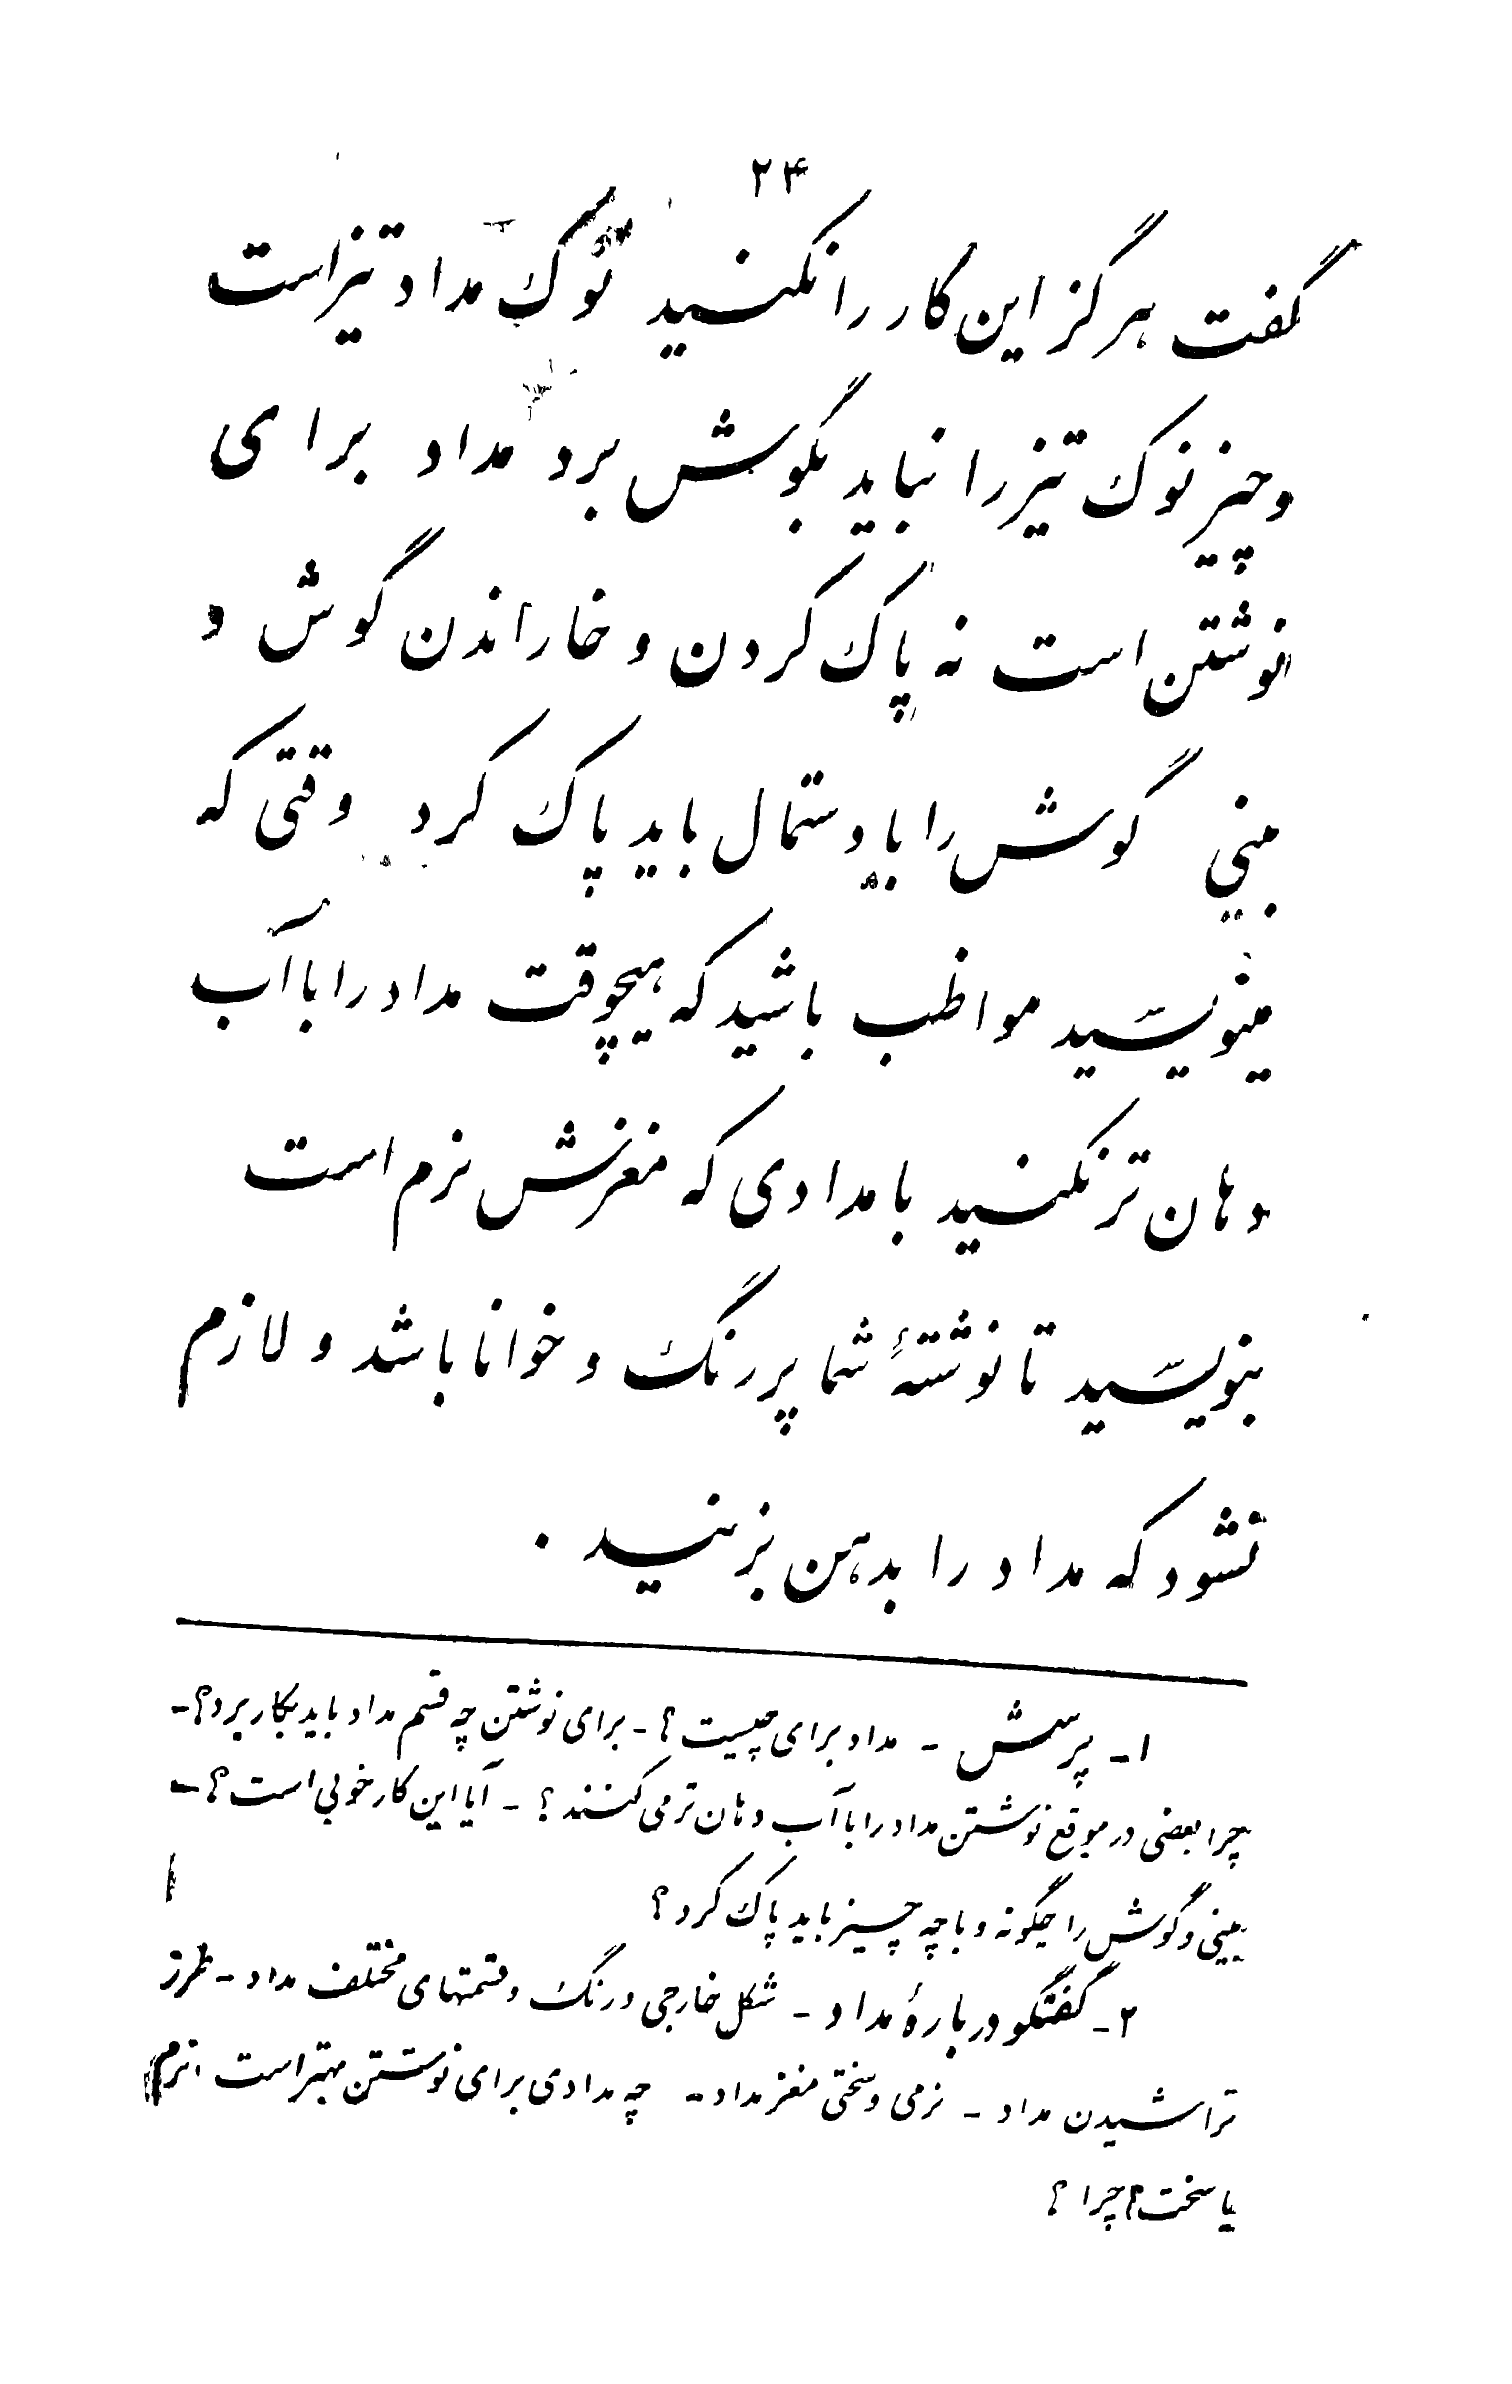 ۲۴
گفت هرگز این کار را نکنید نوک مداد تیز است
و چیز نوک تیز را نباید بگوش برد مداد برای
نوشتن است نه پاک کردن و خاراندن گوش و
بینی گوش را با دستمال باید پاک کرد وقتی که
مینویسید مواظب باشید که هیچوقت مداد را با آب
دهان تر نکنید با مدادی که مغزش نرم است
بنویسید تا نوشتهٔ شما پررنگ و خوانا باشد و لازم
نشود که مداد را بدهن بزنید .
۱- پرسش - مداد برای چیست ؟ - برای نوشتن چه قسم مداد باید بکار برد؟ -
چرا بعضی در موقع نوشتن مداد را با آب دهان تر می کنند ؟ - آیا این کار خوبی است ؟ -
بینی و گوش را چگونه و با چه چیز باید پاک کرد ؟
۲- گفتگو دربارهٔ مداد - شکل خارجی و رنگ و قسمتهای مختلف مداد - طرز
تراشیدن مداد - نرمی و سختی مغز مداد - چه مدادی برای نوشتن بهتر است نرم
یا سخت؟ چرا ؟